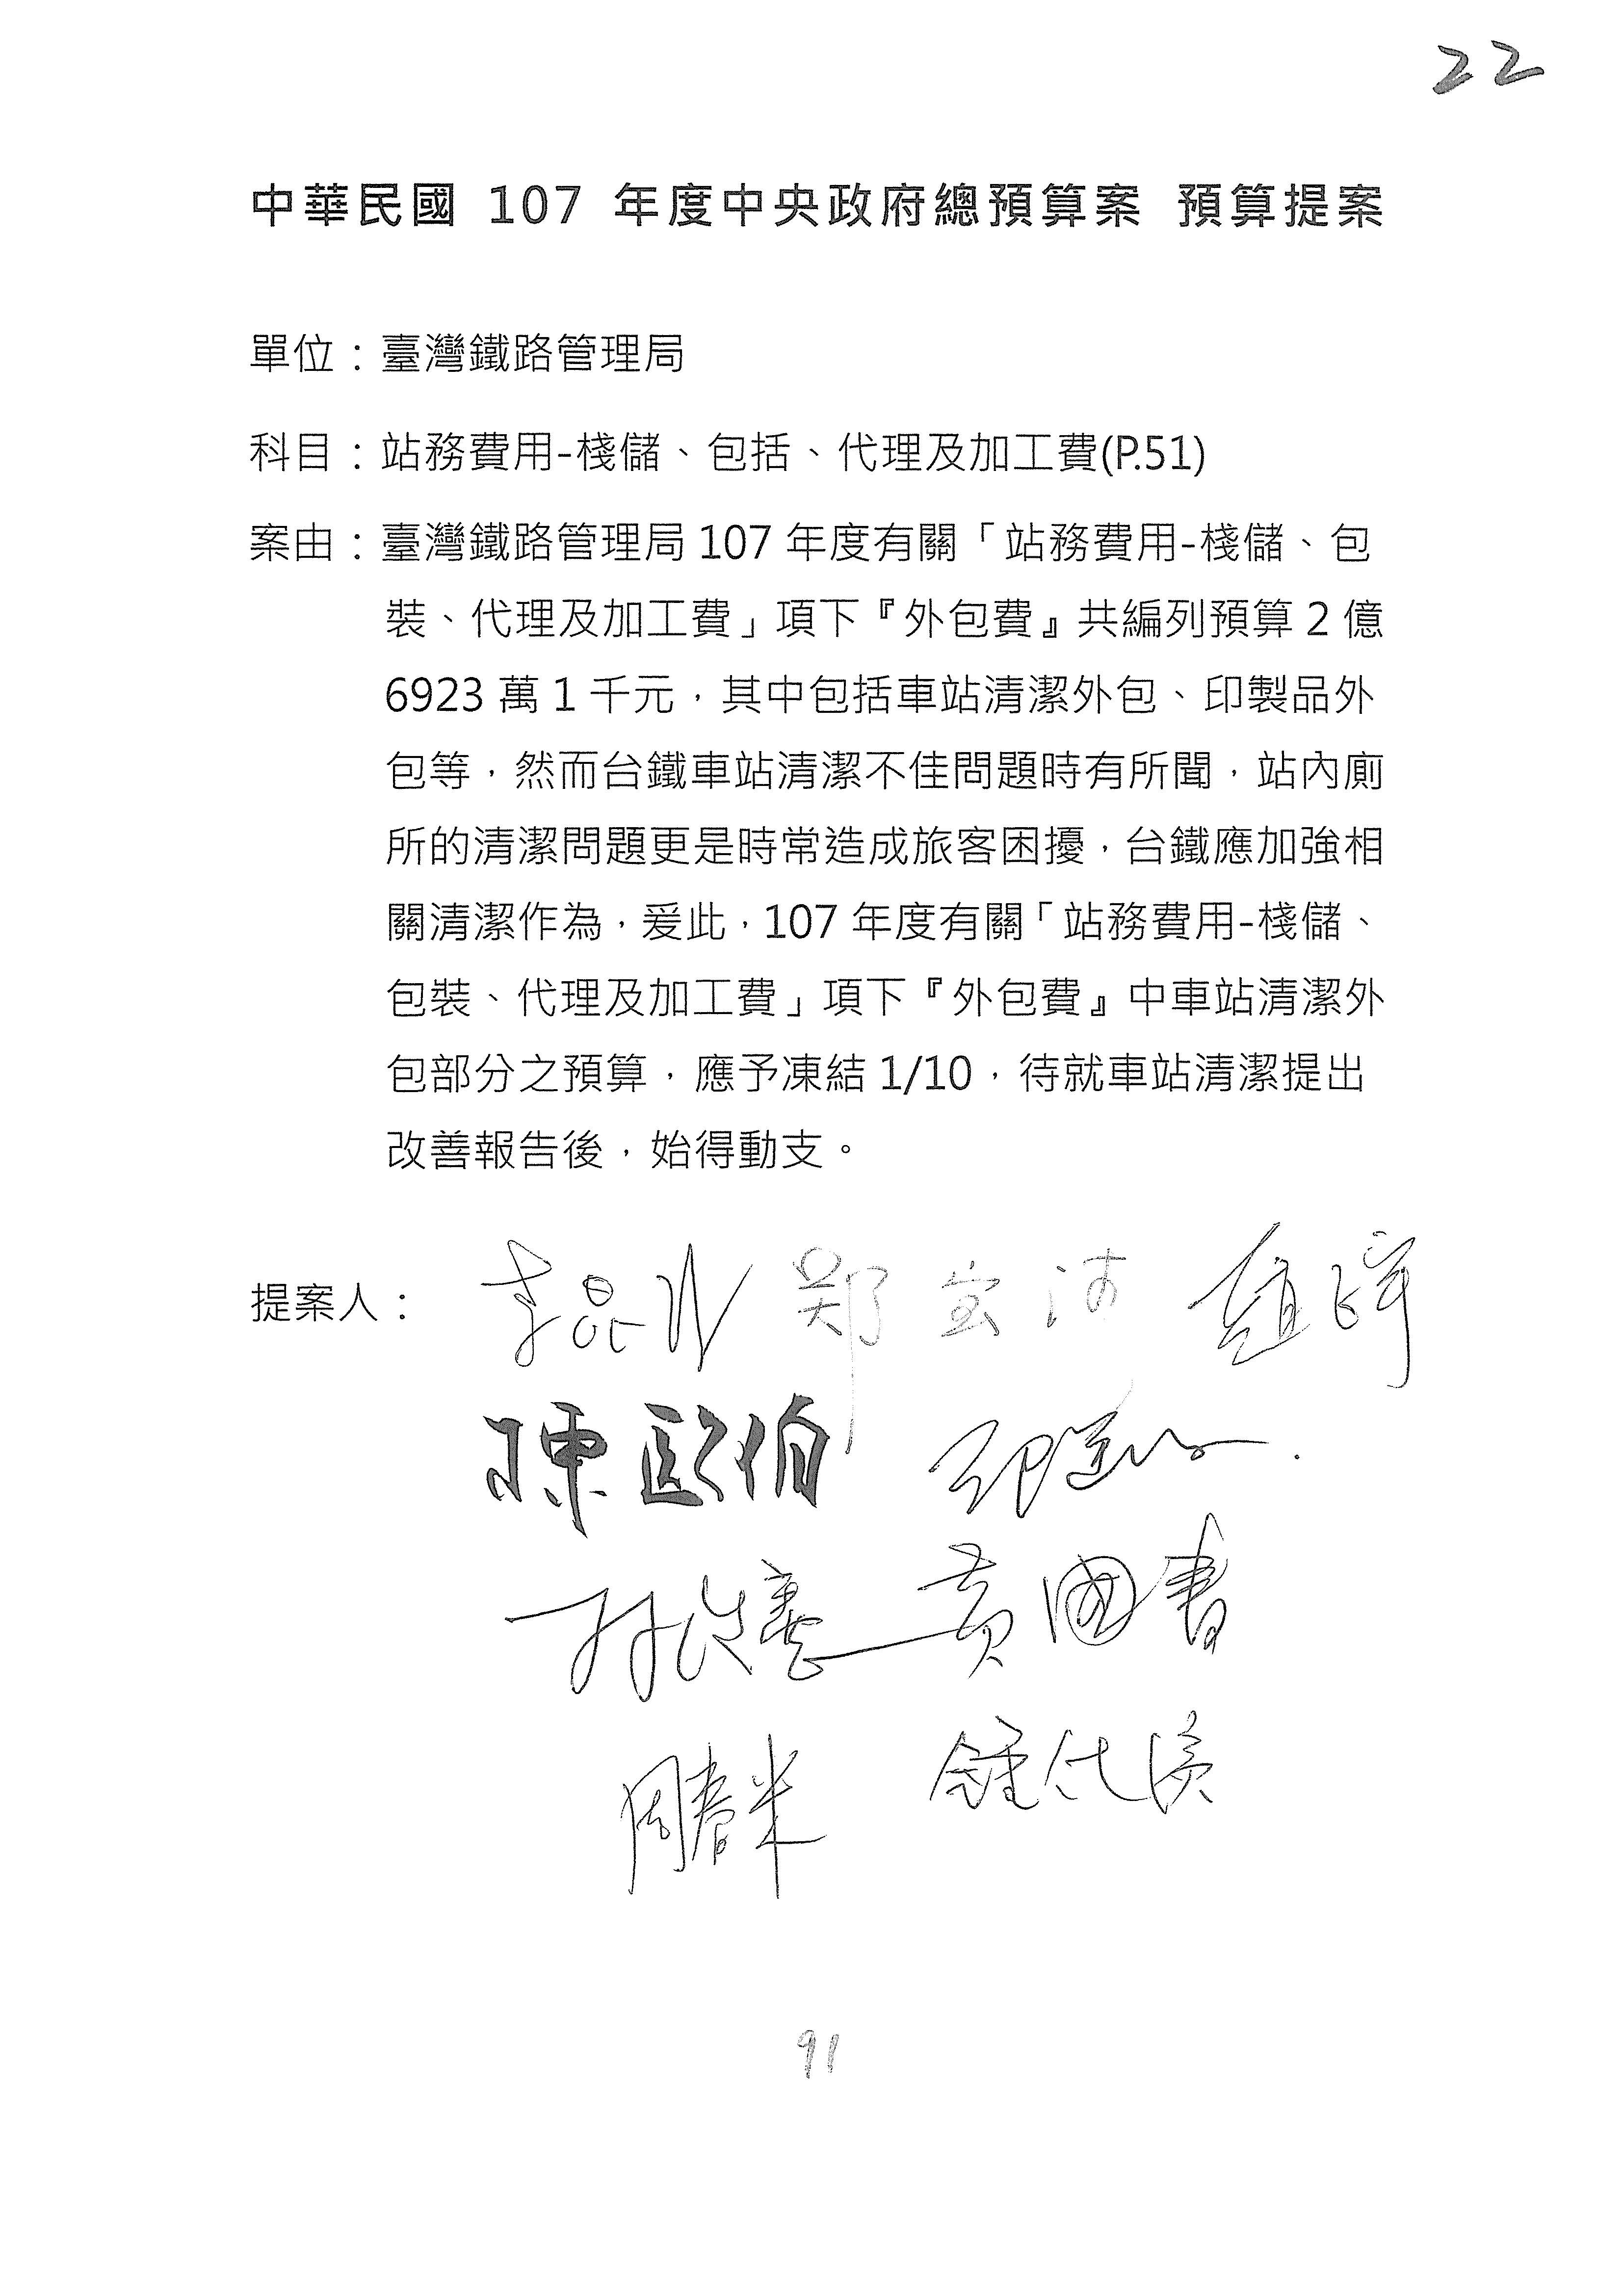 22
中華民國 107 年度中央政府總預算案 預算提案
單位：臺灣鐵路管理局
科目：站務費用-棧儲、包括、代理及加工費(P.51)
案由：臺灣鐵路管理局 107 年度有關「站務費用-棧儲、包
裝、代理及加工費」項下『外包費』共編列預算 2 億
6923 萬 1 千元，其中包括車站清潔外包、印製品外
包等，然而台鐵車站清潔不佳問題時有所聞，站內廁
所的清潔問題更是時常造成旅客困擾，台鐵應加強相
關清潔作為，爰此，107 年度有關「站務費用-棧儲、
包裝、代理及加工費」項下『外包費』中車站清潔外
包部分之預算，應予凍結 1/10，待就車站清潔提出
改善報告後，始得動支。
提案人： 鄭宝清
陳歐珀
黃國書
周春米
91